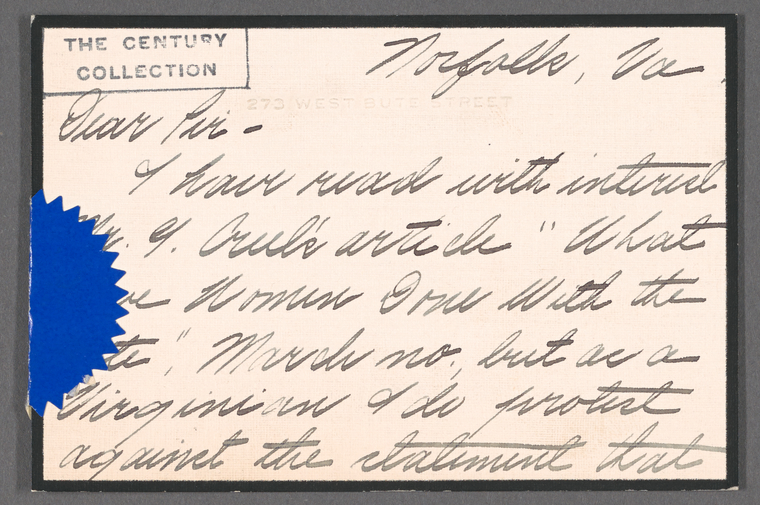 THE CENTURY
COLLECTION
Norfolk, Va.
273 WEST BUTE STREET
Dear Sir-
I have read with interest
G. Creel's article "What
Women Done With the
", March no., but as a
Virginian I do protest
against the statement that